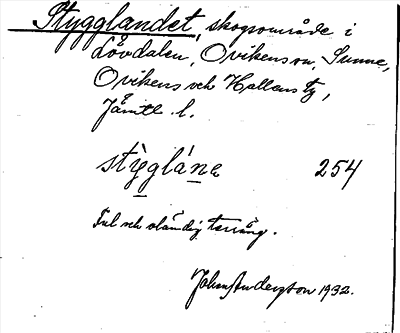 Stygglandet, skogsområde i
Lövdalen, Ovikens sn, Sunne,
Ovikens och Hallens tg,
Jämtl. l.
stỳgláne 254
Ful och oländig terräng.
Johan Anderson 1932.